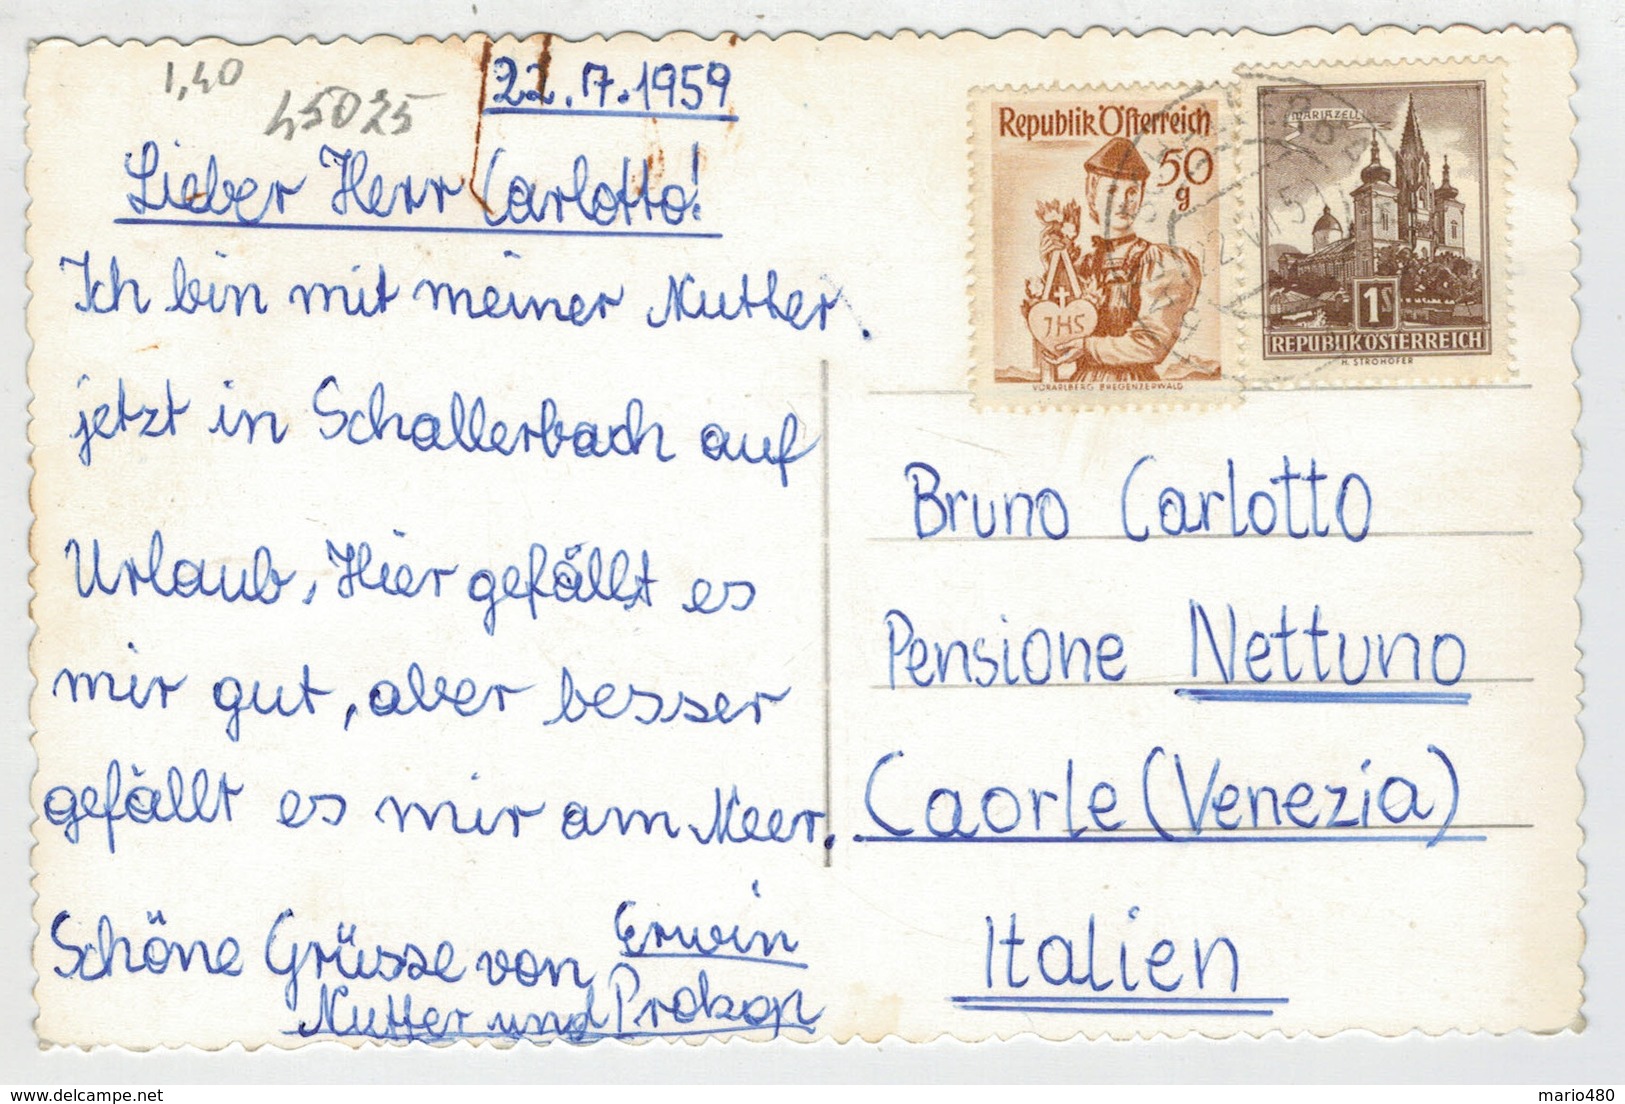 1,40
45025
22.7.1959
Lieber Herr Carlotto!
Ich bin mit meiner Mutter
jetzt in Schallerbach auf
Urlaub, Hier gefällt es
mir gut, aber besser
gefällt es mir am Meer.
Schöne Grüsse von Erwin
Mutter und Prokop
Republik Österreich
50
g
JHS
VORARLBERG BREGENZERWALD
MARIAZELL
1S
REPUBLIK ÖSTERREICH
H. STROHOFER
Bruno Carlotto
Pensione Nettuno
Caorle (Venezia)
Italien
mario480